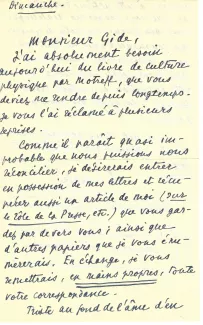 Dimanche.
Monsieur Gide,
J'ai absolument besoin
aujourd'hui du livre de culture
physique par Motteff, que vous
deviez me rendre depuis longtemps.
Je vous l'ai réclamé à plusieurs
reprises.
Comme il paraît quasi im-
probable que nous puissions nous
réconcilier, je désirerais entrer
en possession de mes lettres et récu-
pérer aussi un article de moi (sur
le rôle de la Presse, etc.) que vous gar-
dez par devers vous ; ainsi que
d'autres papiers que je vous énu-
mérerais. En échange, je vous
remettrais, en mains propres, toute
votre correspondance.
Triste au fond de l'âme d'en